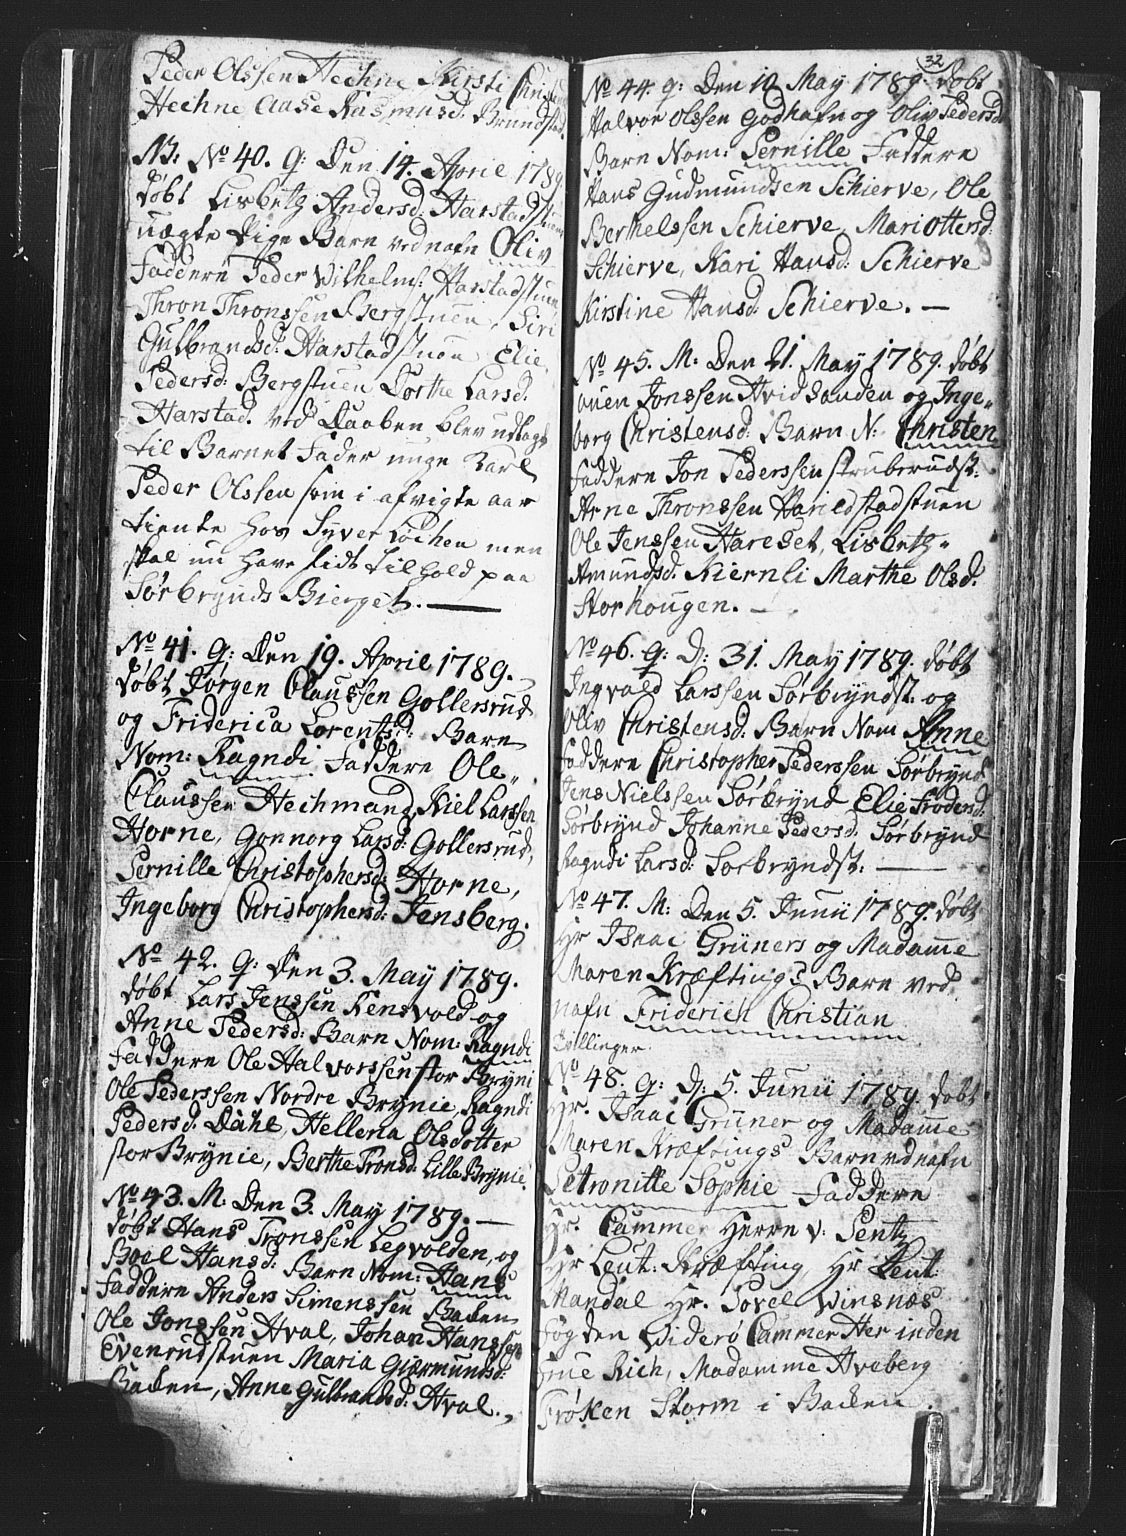 Peder Olssen Hechne, Kirsti Christens
Hechne Aase Rasmusd. Brundstad.
NB: No 40. Q: Den 14. April 1789.
døbt Lisbetg Andersd: Harstadstuen
uægte Pige Barn ved nafn Oliv
Faddere Peder Wilhelms: Harstadstuen
Thron Thronssen Bergstuen, Siri
Gulbrandsd: Harstadstuen Elie
Pedersd: Bergstuen Dorthe Larsd.
Harstad. ved Daaben blev udlagt
til Barnet Fader unge Karl
Peder Olssen som i afvigte aar
tiente hos Syver Lochen men
skal nu have sidt tilhold paa
Sørbrynds Bierget.
No 41. Q: Den 19. April 1789.
døbt Jørgen Claussen Gollersrud
og Friderica Lorentsd: Barn
Nom: Ragndi Faddere Ole
Claussen Hechmand, Kiel Larssen
Horne, Gonnorg Larsd: Gollersrud,
Pernille Christophersd: Horne,
Ingeborg Christophersd: Jensberg.
No 42. Q: Den 3. May 1789.
døbt Lars Jenssen Kensvold og
Anne Pedersd: Barn Nom: Ragndi
Faddere Ole Halvorssen stor Bryni
Ole Pederssen Nordre Brynie, Ragndi
Pedersd. Dahl, Hellena Olsdotter
stor Brynie, Berthe Tronsd: Lille Brynie.
No 43. M: Den 3. May 1789.
døbt Hans Tronssen Legvolden, og
Boel Hansd: Barn Nom: Hans
Faddere Anders Simenssen Baden
Ole Jonssen Hval, Johan Hanssen
Evenrudstuen Maria Giermundsd:
Baden, Anne Gulbrandsd: Hval.
32
No 44. Q: Den 10 May 1789. døbt
Halvor Olssen Godhafn og Oliv Pedersd
Barn Nom: Pernille Faddere
Hans Gudmundsen Schierve, Ole
Berthelssen Schierve, Mari Ottersd:
Schierve, Kari Hansd: Schierve
Kirstine Hansd: Schierve.
No 45. M: Den 21. May 1789. døbt
ouen Jonssen Hvidsanden og Inge„
borg Christensd: Barn N: Christen
Faddere Jon Pederssen Struberudst:
Arne Thronssen Harildstadstuen
Ole Jenssen Hareset, Lisbetg„
Amundsd. Kiernli Marthe Olsd.
Storhougen.
No 46. Q: D: 31. May 1789. døbt
Ingvald Larssen Sørbryndst. og
Oliv Christensd: Barn Nom Anne
Faddere Christopher Pederssen Sørbrynd
Jens Nielssen Sørbrynd Elie Frodersd:
Sørbrynd Johanne Pedersd. Sørbrynd
Ragndi Larsd: Sorbryndst:
No 47. M: Den 5. Junii 1789. døbt
Hr Isaac Grüners og Madamme
Maren Kræftings Barn ved
nafn Friderich Christian
Tvillinger.
No 48. Q: D: 5. Junii 1789. døbt
Hr. Isaac Grüner og Madamme
Maren Kræftings Barn ved nafn
Petronille Sophie Faddere
Hr. Cammer Herre v: Pentz
Hr Leut: Kræfting, Hr Leut:
Mandal Hr. Povel Winsnæs
Fogden Widerø Cammer Herinden
Frue Rich, Madamme Hveberg
Frøken Storm i Baden.